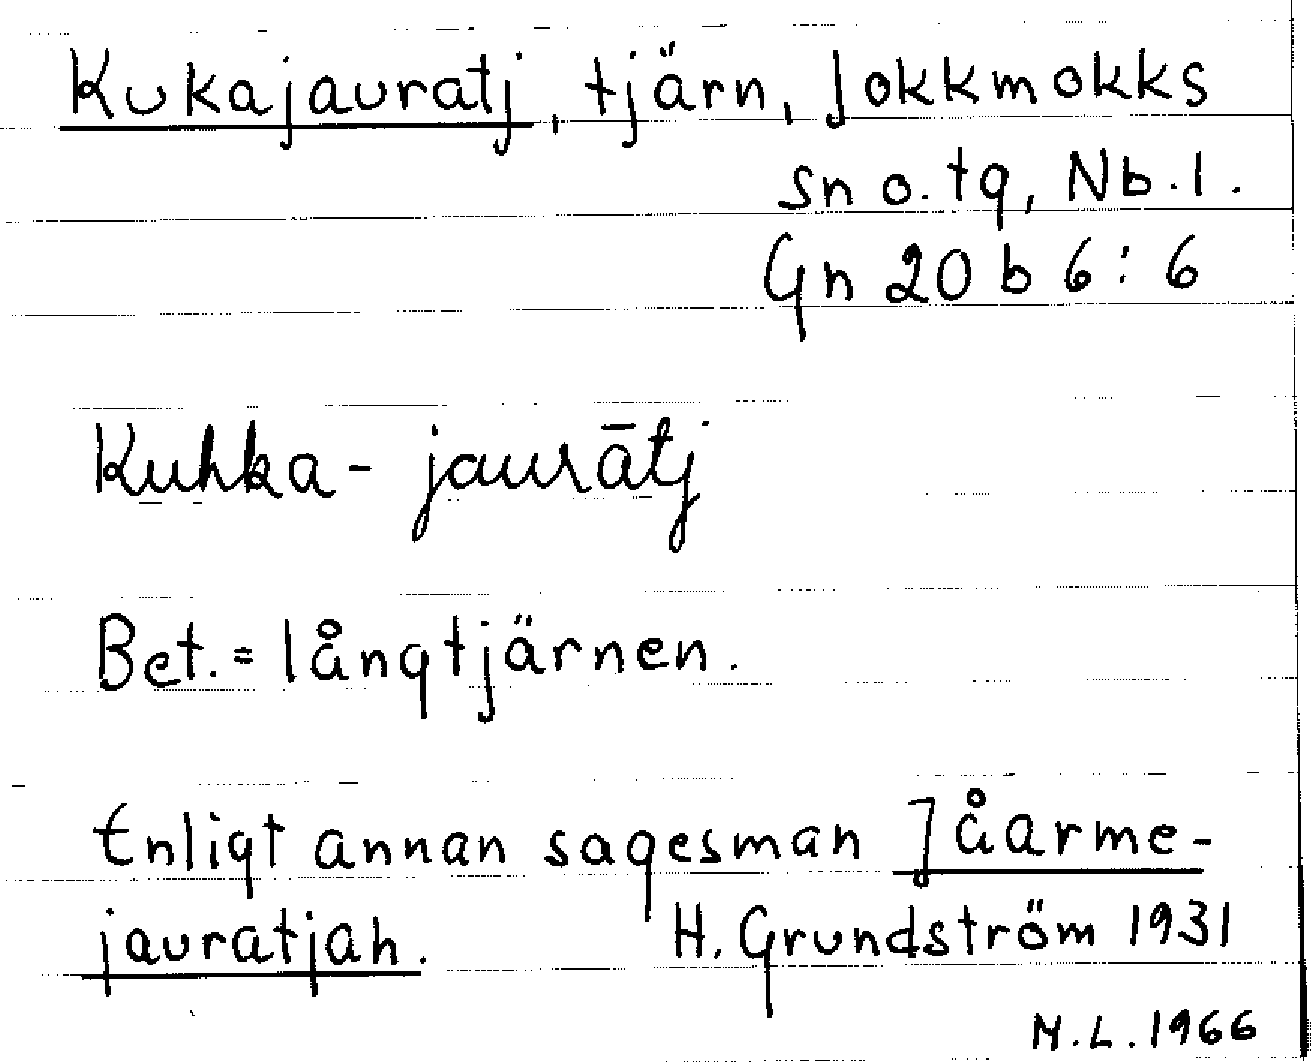 Kukajauratj, tjärn, Jokkmokks
sn o. tg, Nb. l.
Gn 20 b 6 : 6
Kuhka - jaurātj
Bet. = långtjärnen.
Enligt annan sagesman Jåarme-
jauratjah. H. Grundström 1931
M. L. 1966